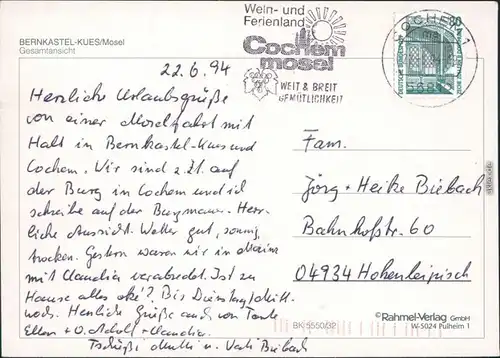 BERNKASTEL-KUES/Mosel
Gesamtansicht
Wein- und
Ferienland
Cochem
mosel
WEIT & BREIT
GEMÜTLICHKEIT
COCHEM 1
80
22.6.94
Herzliche Urlaubsgrüße
von einer Moselfahrt mit
Halt in Bernkastel-Kues und
Cochem. Wir sind z.Zt. auf
der Burg in Cochem und ich
schreibe auf der Burgmauer. Herr-
liche Aussicht. Wetter gut, sonnig,
trocken. Gestern waren wir in Mainz
mit Claudia verabredet. Ist zu
Hause alles oke? Bis Dienstag/Mitt-
woch. Herzliche Grüße auch von Tante
Ellen + O. Adolf + Claudia.
Tschüßi Mutti u. Vati Biebach
Fam.
Jörg + Heike Biebach
Bahnhofstr. 60
04934 Hohenleipisch
BK 5550/32
© Rahmel-Verlag GmbH
W-5024 Pulheim 1